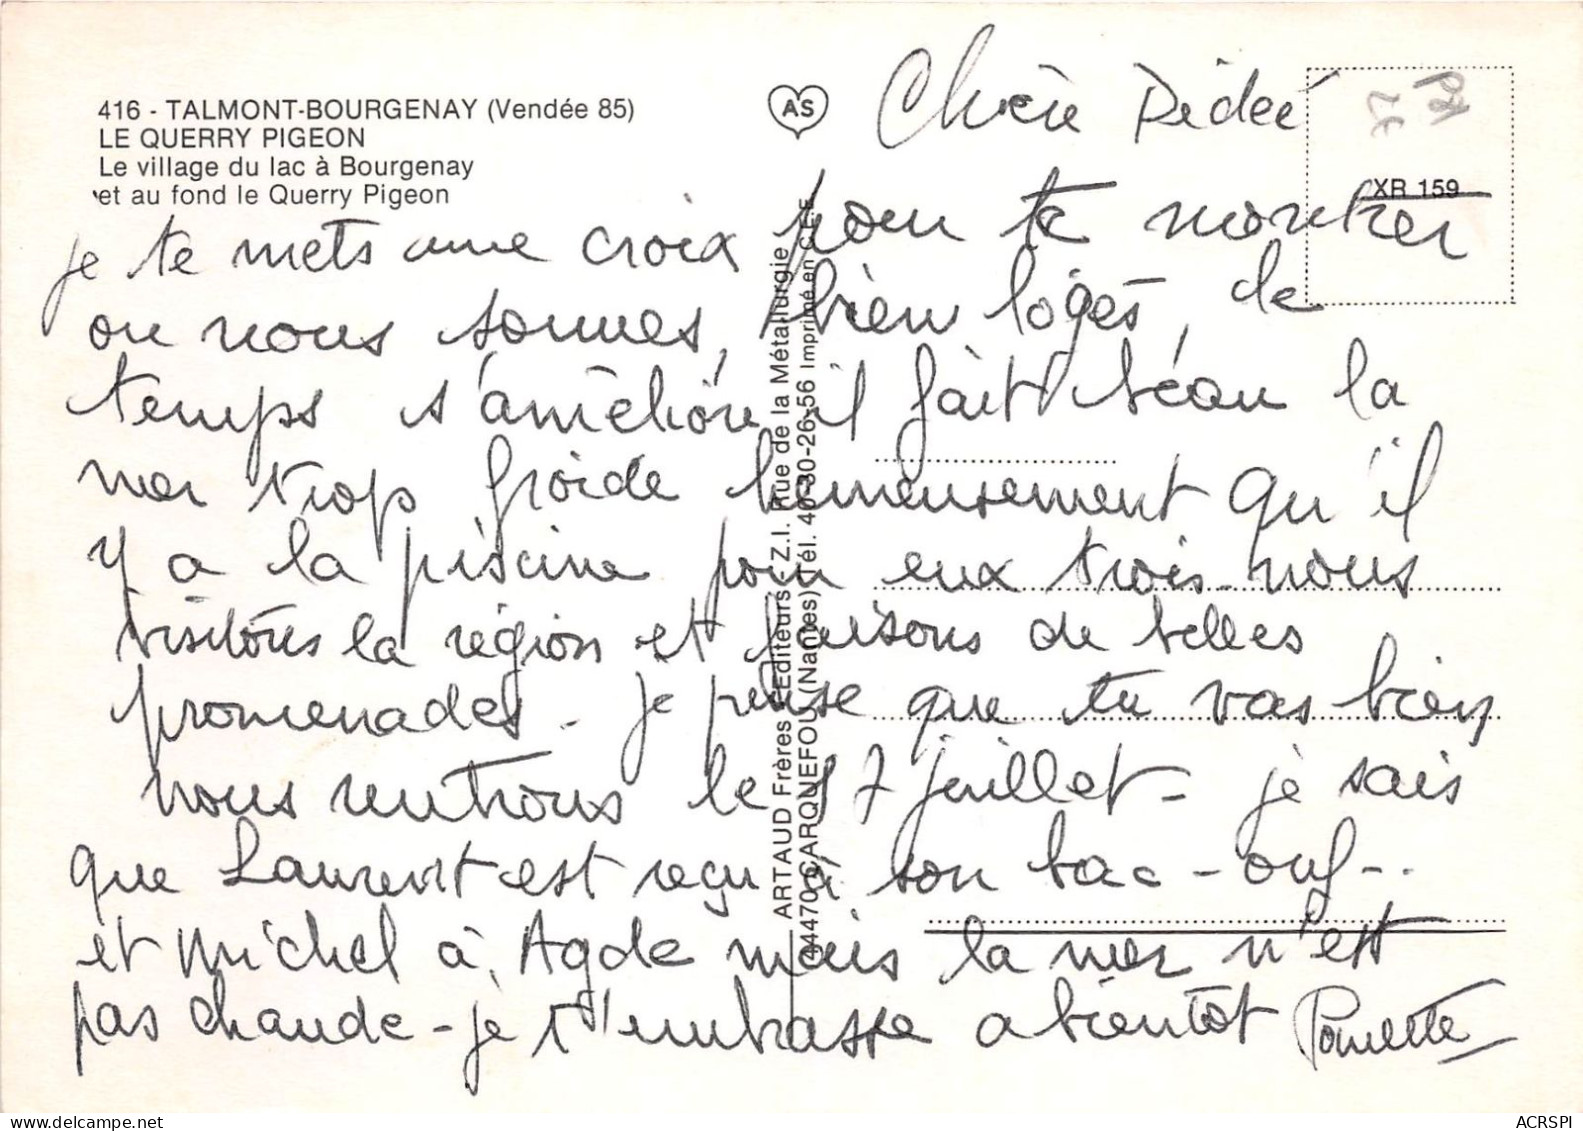 416 - TALMONT-BOURGENAY (Vendée 85)
LE QUERRY PIGEON
Le village du lac à Bourgenay
et au fond le Querry Pigeon
AS
XR 159
ARTAUD Frères - Editeurs - Z.I. Rue de la Métallurgie
44470 CARQUEFOU (Nantes) Tél. 40-30-26-56 Imprimé en C.E.E.
Chère Dédée
je te mets une croix pour te montrer
ou nous sommes, bien logés, de
temps s'améliore il fait beau la
mer trop froide heureusement qu'il
y a la piscine pour eux trois - nous
visitons la région et faisons de belles
promenades - je pense que tu vas bien
nous rentrons le 17 juillet - je sais
que Laurent est reçu à son bac - ouf - ..
et Michel à Agde mais la mer n'est
pas chaude - je t'embrasse a bientôt
ACRSPI